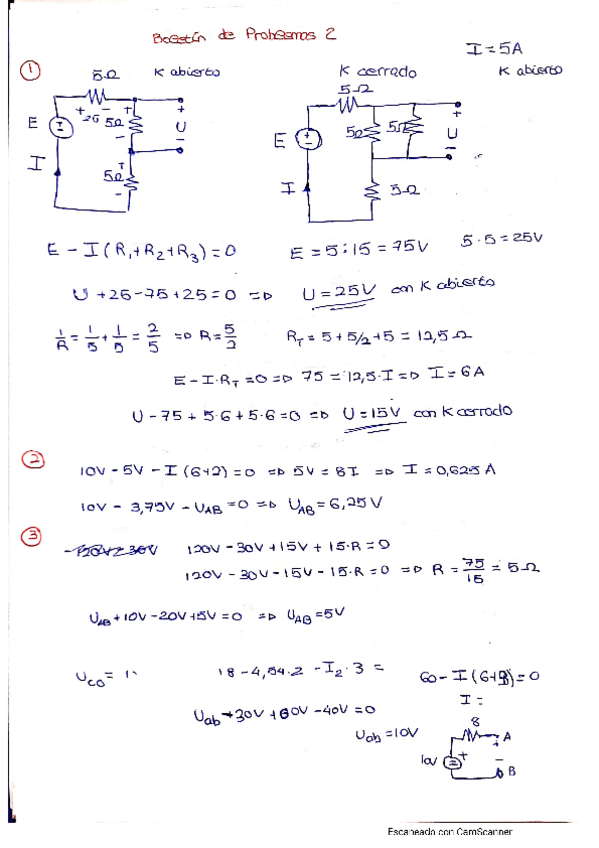 Boletín de Problemas 2
I = 5A
① 5Ω K abierto K cerrado K abierto
5Ω
+ 25 - 5Ω + - U
E I
5Ω + -
E + - 5Ω 5Ω + U -
I 5Ω
E - I(R₁+R₂+R₃)=0 E = 5·15 = 75V 5·5 = 25V
U + 25 - 75 + 25 = 0 => U = 25V con K abierto
1/R = 1/5 + 1/5 = 2/5 => R = 5/2 R_T = 5 + 5/2 + 5 = 12,5Ω
E - I·R_T = 0 => 75 = 12,5·I => I = 6A
U - 75 + 5·6 + 5·6 = 0 => U = 15V con K cerrado
② 10V - 5V - I(6+2) = 0 => 5V = 8I => I = 0,625A
10V - 3,75V - U_AB = 0 => U_AB = 6,25V
③ 120V - 30V + 15V + 15·R = 0
120V - 30V - 15V - 15·R = 0 => R = 75/15 = 5Ω
U_AB + 10V - 20V + 5V = 0 => U_AB = 5V
U_CO = 1· 18 - 4,54·2 - I₂·3 = 60 - I(6+9) = 0
I =
U_ab + 30V + 60V - 40V = 0
U_ab = 10V
8
10V + + A
- B
Escaneado con CamScanner